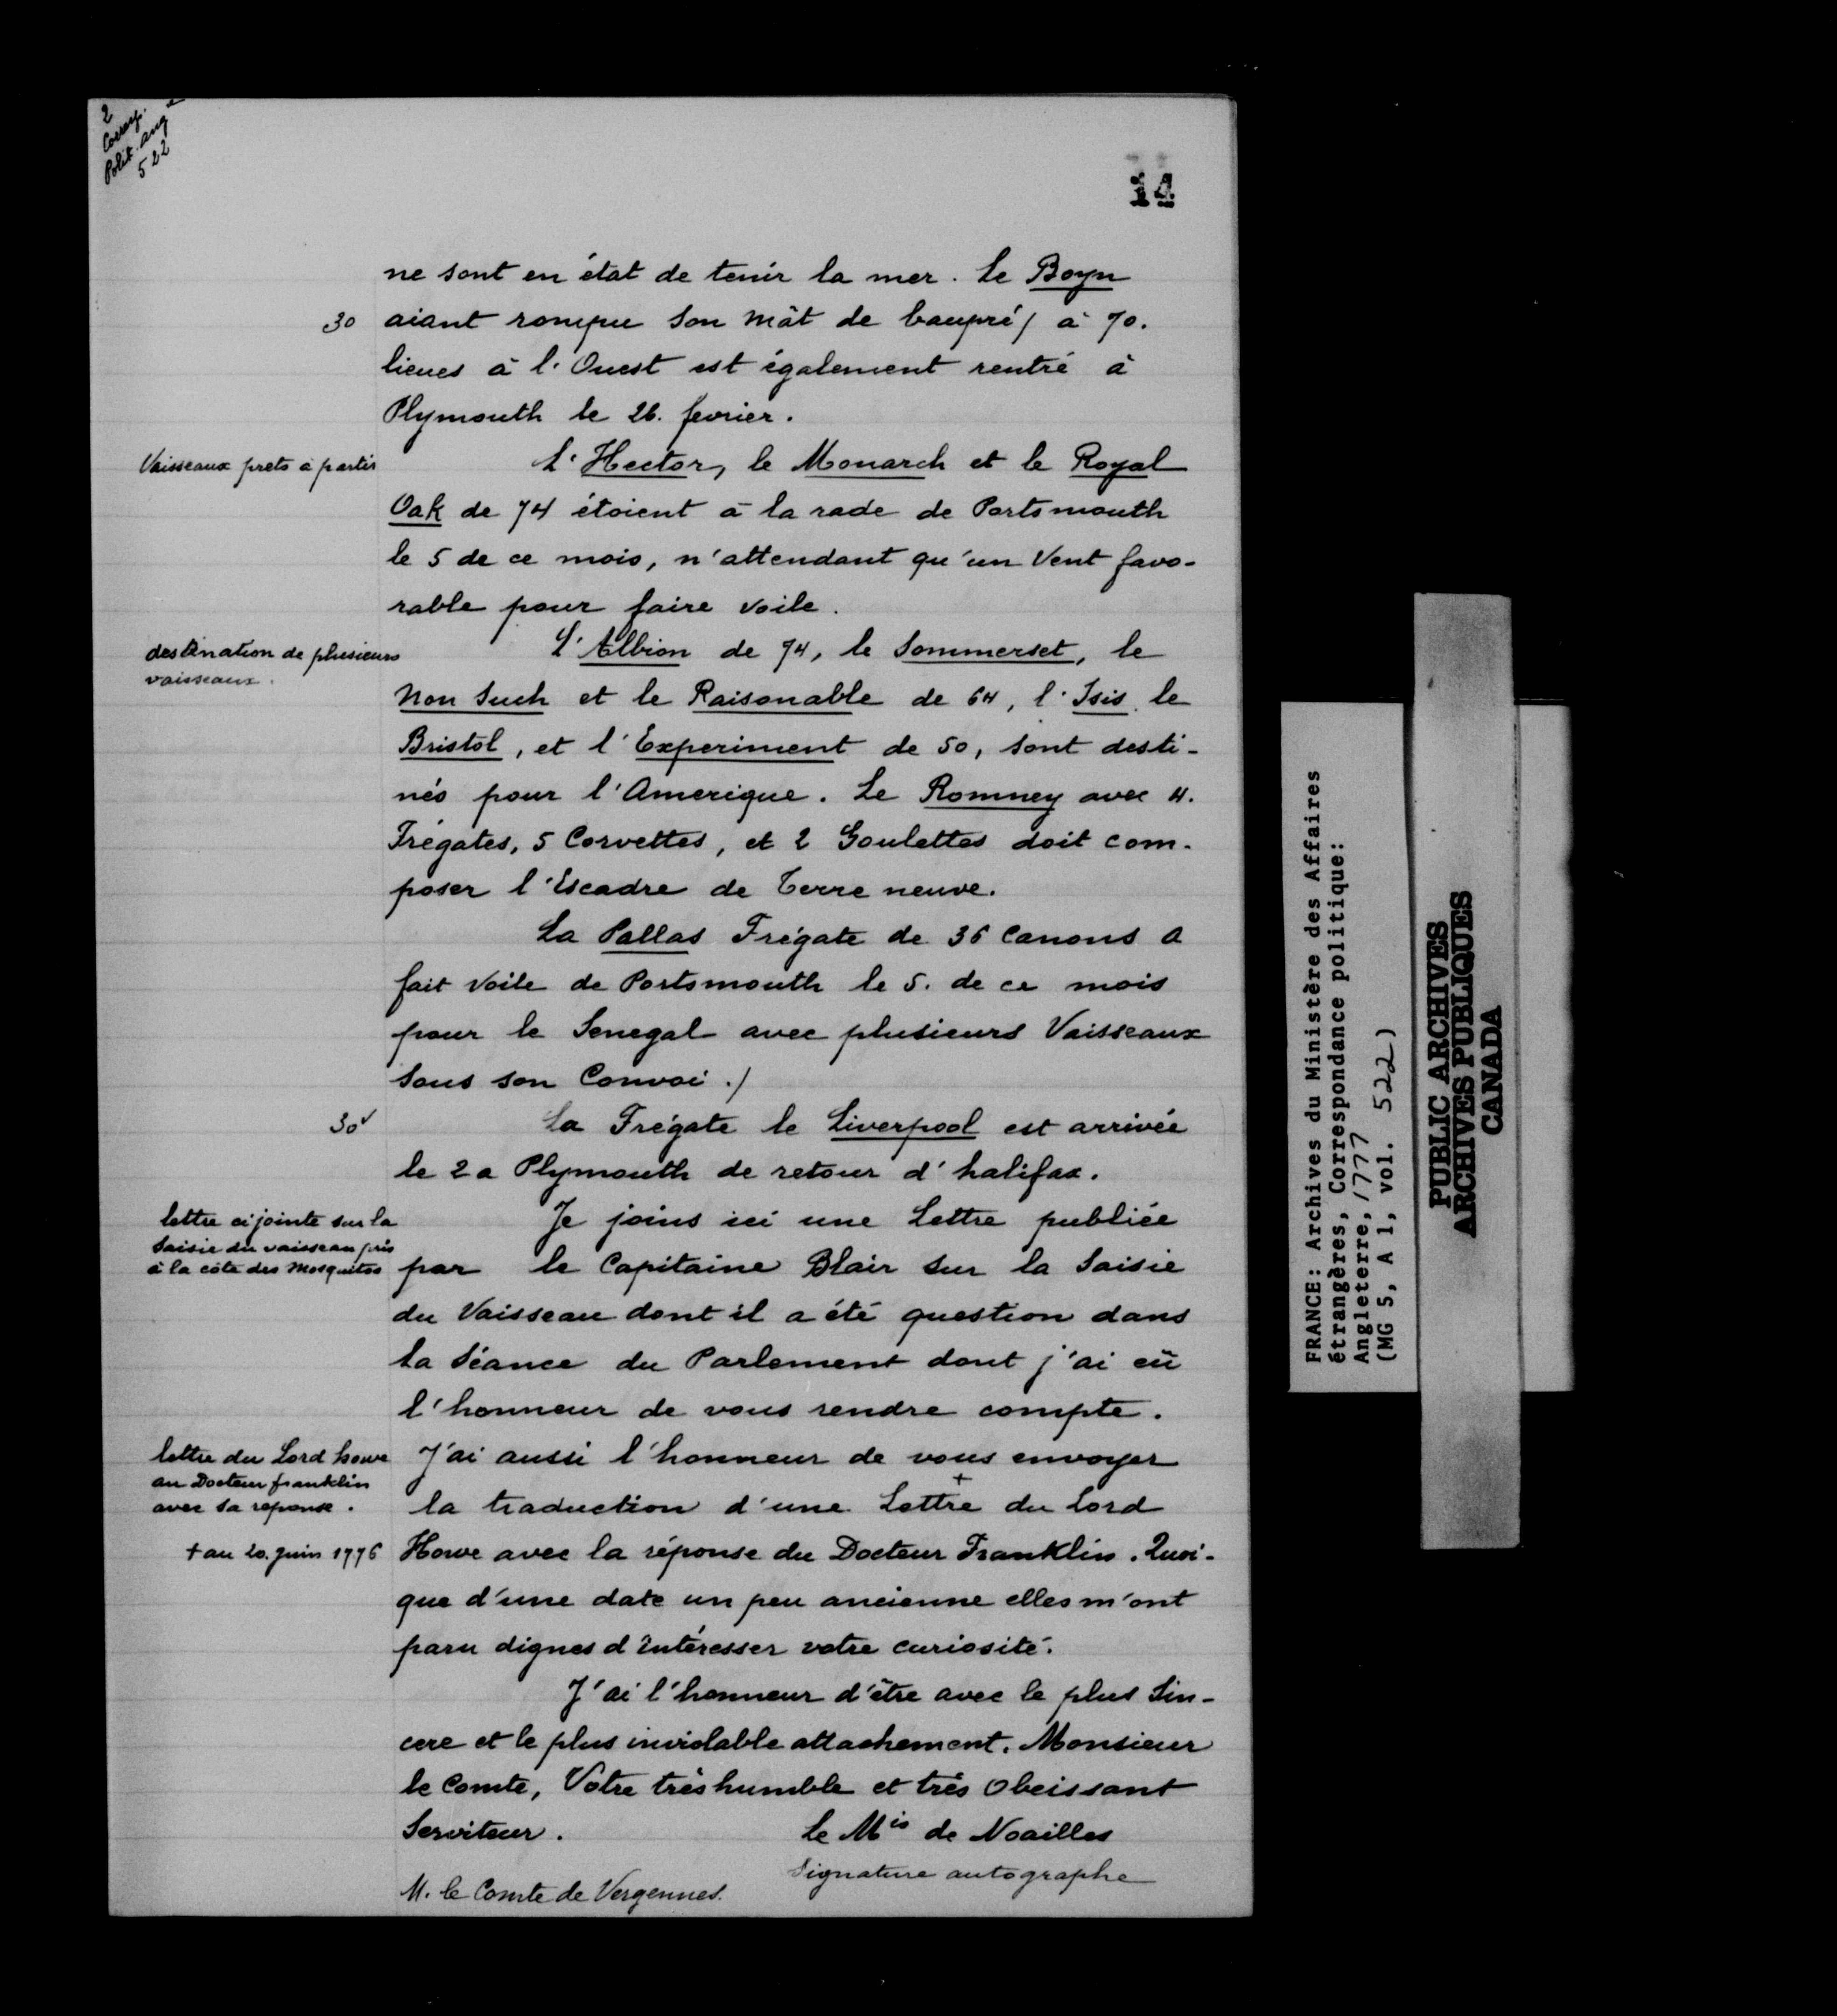 2
Corresp.
Polit. Ang
522
14
ne sont en état de tenir la mer. Le Boyn
30 aiant rompu son mât de baupré/ à 70.
lieues à l'Ouest est également rentré à
Plymouth le 26. fevrier.
Vaisseaux prets à partir
L'Hector, le Monarch et le Royal
Oak de 74 étoient à la rade de Portsmouth
le 5 de ce mois, n'attendant qu'un Vent favo-
rable pour faire voile.
destination de plusieurs
vaisseaux.
L'Albion de 74, le Sommerset, le
Non Such et le Raisonable de 64, l'Isis le
Bristol, et l'Experiment de 50, sont desti-
nés pour l'Amerique. Le Romney avec 4.
Frégates, 5 Corvettes, et 2 Goulettes doit com-
poser l'Escadre de Terre neuve.
La Pallas Frégate de 36 Canons a
fait voile de Portsmouth le 5. de ce mois
pour le Senegal avec plusieurs Vaisseaux
sous son Convoi./
30v La Frégate le Liverpool est arrivée
le 2 a Plymouth de retour d'halifax.
lettre ci jointe sur la
Saisie du vaisseau pris
à la côte des Mosquitos
Je joins ici une Lettre publiée
par le Capitaine Blair sur la Saisie
du Vaisseau dont il a été question dans
la Séance du Parlement dont j'ai eû
l'honneur de vous rendre compte.
lettre du Lord howe
au Docteur franklin
avec sa reponse.
J'ai aussi l'honneur de vous envoyer
la traduction d'une Lettre + du Lord
+ au 20. Juin 1776
Howe avec la réponse du Docteur Franklin. Quoi-
que d'une date un peu ancienne elles m'ont
paru dignes d'intéresser votre curiosité.
J'ai l'honneur d'être avec le plus Sin-
cere et le plus inviolable attachement. Monsieur
le Comte, Votre très humble et très Obeissant
Serviteur.
Le Mis de Noailles
Signature autographe
M. le Comte de Vergennes.
FRANCE: Archives du Ministère des Affaires
étrangères, Correspondance politique:
Angleterre, 1777
(MG 5, A 1, vol. 522)
PUBLIC ARCHIVES
ARCHIVES PUBLIQUES
CANADA